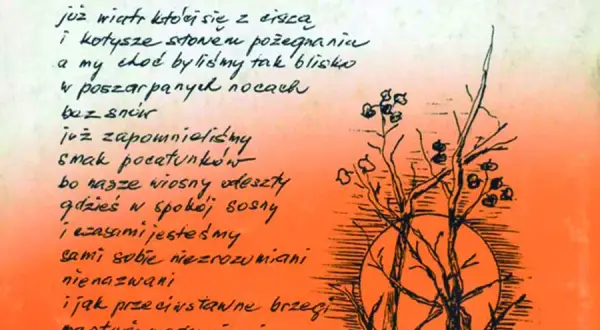 już wiatr kłóci się z ciszą
i kołysze słowem pożegnania
a my choć byliśmy tak blisko
w poszarpanych nocach
bez snów
już zapomnieliśmy
smak pocałunków
bo nasze wiosny odeszły
gdzieś w spokój sosny
i czasami jesteśmy
sami sobie niezrozumiani
nienazwani
i jak przeciwstawne brzegi